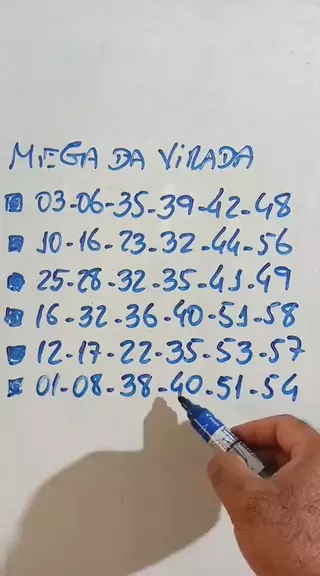 MEGA DA VIRADA
03-06-35-39-42-48
10-16-23-32-44-56
25-28-32-35-41-49
16-32-36-40-51-58
12-17-22-35-53-57
01-08-38-40-51-54